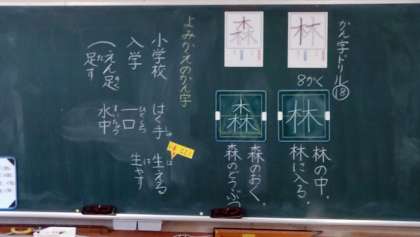 かん字ドリル⑱
林
8かく
林
林の中。
林に入る。
森
森
森のおく。
森のどうぶつ
よみかえのかん字
小学校
入学
(えん足
足す
はく手
一口
水中
生える
生やす